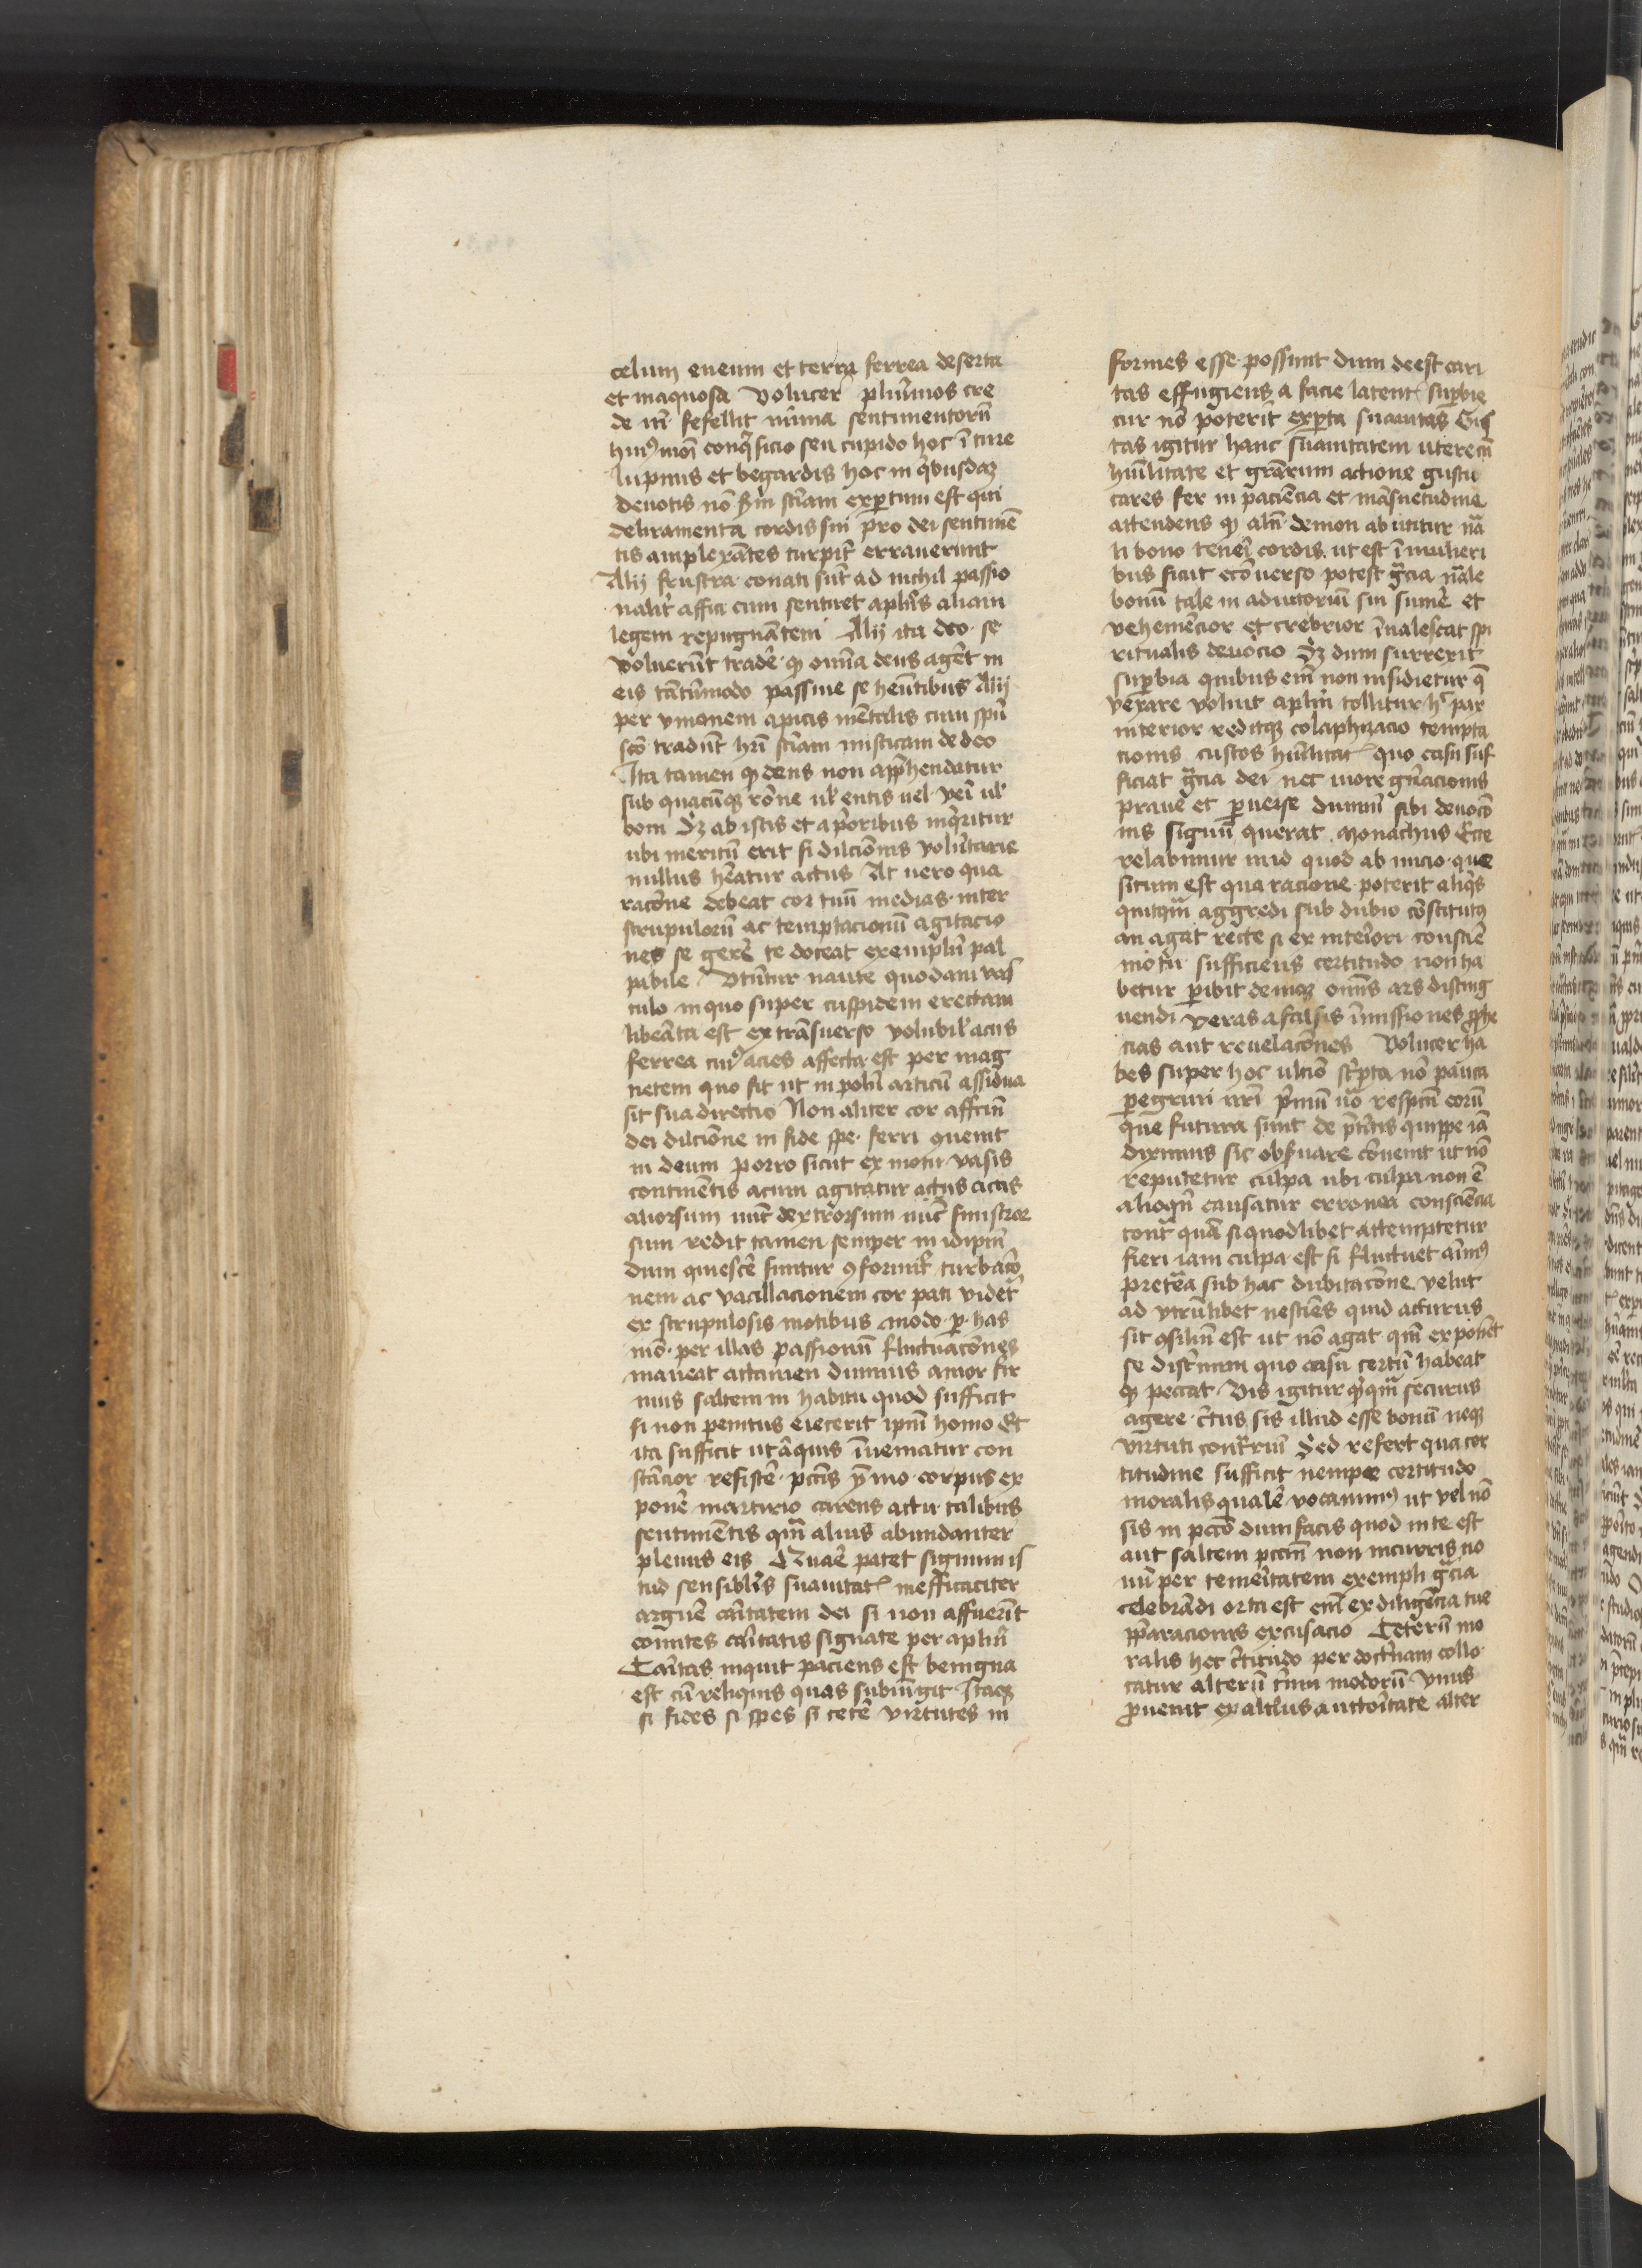 celum eneum et terra ferrea deserta
et inaquosa Volucer plurīmos cre
de m̄ fefellit nīmia sentimentorū
huiꝰmōi conqⁱsicio seu cupido hoc ī ture
lupinis et begardis hoc in qⁱbusdaꝫ
deuotis nō scd̄m sciām expertum est qui
deliramenta cordis sui pro dei sentimē
tis amplexātes turpit̄ errauerunt
Alij frustra conati sūt ad nichil passio
nalit̄ affici cum sentiret apl̄us aliam
legem repugnātem Alij ita deo se
voluerūt tradē ꝙ omīa deus agēt in
eis tātūmodo passiue se hēntibus Alij
per vnionem apicis mētalis cum spū
scō tradūt hrī sciām misticam de deo
Ita tamen ꝙ deus non apphendatur
sub quacūqꝫ rōne ul̄ entis uel veī ul̄
boni Sꝫ ab istis et a prioribus inqⁱritur
ubi meritū erit si dilciōnis volūtarie
nullus hēatur actus At uero qua
racōne debeat cor tuū medias inter
scrupulorū ac temptacionū agitacio
nes se gerē te doceat exemplū pal
pabile Vtūtur naute quodam vas
culo in quo super cuspidem erectam
libeāta est ex trāsuerso volubil̄ acus
ferrea cuiꝰ acies affecta est per mag
netem quo fit ut in poli articū assidua
sit sua directio Non aliter cor affcm̄
dei dilciōne in fide spe ferri ꝯuenit
in deum porro sicut ex motu vasis
continētis acum agitatur actus actis
aliorsum nūc dextrorsum nūc sinistror
sum redit tamen semper in idipm̄
dum quiescē sinitur ꝯformit̄ turbacō
nem ac vacillacionem cor pati videt̄
ex scrupulosis motibus modo ꝑ has
mō per illas passionū fluctuacōnes
maneat attamen diuinus amor fir
mus saltem in habitu quod sufficit
si non penitus eiecerit ipm̄ homo Et
ita sufficit ut āquis īueniatur con
stācior resistē pctīs ymmo corpus ex
ponē martirio carens actu talibus
sentimētis qm̄ alius abundanter
plenus eis Quaē patet signum is
tud sensiblīs suauitatꝭ inefficaciter
arguē caritatem dei si non affuerīt
comites caritatis signate per aplm̄
Caritas inquit paciens est benigna
est cū reliquis quas subiūgit Itaqꝫ
si fides si spes si ceterē virtutes in
formes esse possunt dum deest cari
tas effugiens a facie latentꝭ superbie
cur nō poterit experta suauitas Gus
tas igitur hanc suauitatem utere cū
humilitate et grārum actione gustu
cares fer in paciēcia et māsuetudine
attendens ꝙ alm̄ demon ab utitur nā
li bono teneri cordis ut est ī mulieri
bus sicut ecōuerso potest grācia nāle
bonū tale in adiutoriū sui sumē et
vehemēcior et crebrior īualescat spi
ritualis deuocio Sꝫ dum surrexit
superbia quibus em̄ non insidietur q̄
vexare voluit aplm̄ tollitur hꝭ par
interior reditqꝫ colaphizacio tempta
cionis custos humilitatꝭ quo casu suf
ficiat grācia dei nec more gn̄acionis
praue et peruerse diuinū sibi deuocō
nis signū querat monachus Ecce
relabimur in id quod ab inicio que
situm est qua racione poterit aliqⁱs
quitqm̄ aggredi sub dubio cōstitutꝰ
an agat recte si ex interiori consciē
motu sufficiens certitudo non ha
betur peribit deniqꝫ omīs ars disting
uendi veras a falsis īmissiones pphe
cias aut reuelacōnes Volucer ha
bes super hoc ulcio scripta nō pauca
peregrini nri primū uō respcm̄ eorū
que futura sunt de pn̄tis quippe iā
diximus sic obseruare cōuenit ut nō
reputetur culpa ubi culpa non ē
alioqn̄ causatur erronea consciēcia
cont̄ quā si quodlibet attemptetur
fieri iam culpa est si fluctuet aīmꝰ
pretēa sub hac dubitacōne velut
ad vtrūlibet nesciēs quid acturus
sit ꝯsiliū est ut nō agat qm̄ exponēt
se discrimini quo casu certū habeat
ꝙ peccat Vis igitur qⁱcqm̄ securus
agere c̄tus sis illud esse bonū neqꝫ
virtuti contrariū Sed refert qua cer
titudine sufficit nempe certitudo
moralis qualē vocamꝰ ut vel nō
sis in pccō dum facis quod in te est
aut saltem pccm̄ non incurris no
uū per temeritatem exempli grācia
celebrādi orta est em̄ ex diligēcia tue
pparacionis excusacio Ceterū mo
ralis hec c̄titudo per doctrinam collo
catur alterū trium modorū Vnus
prouenit ex altius auctoritate alter